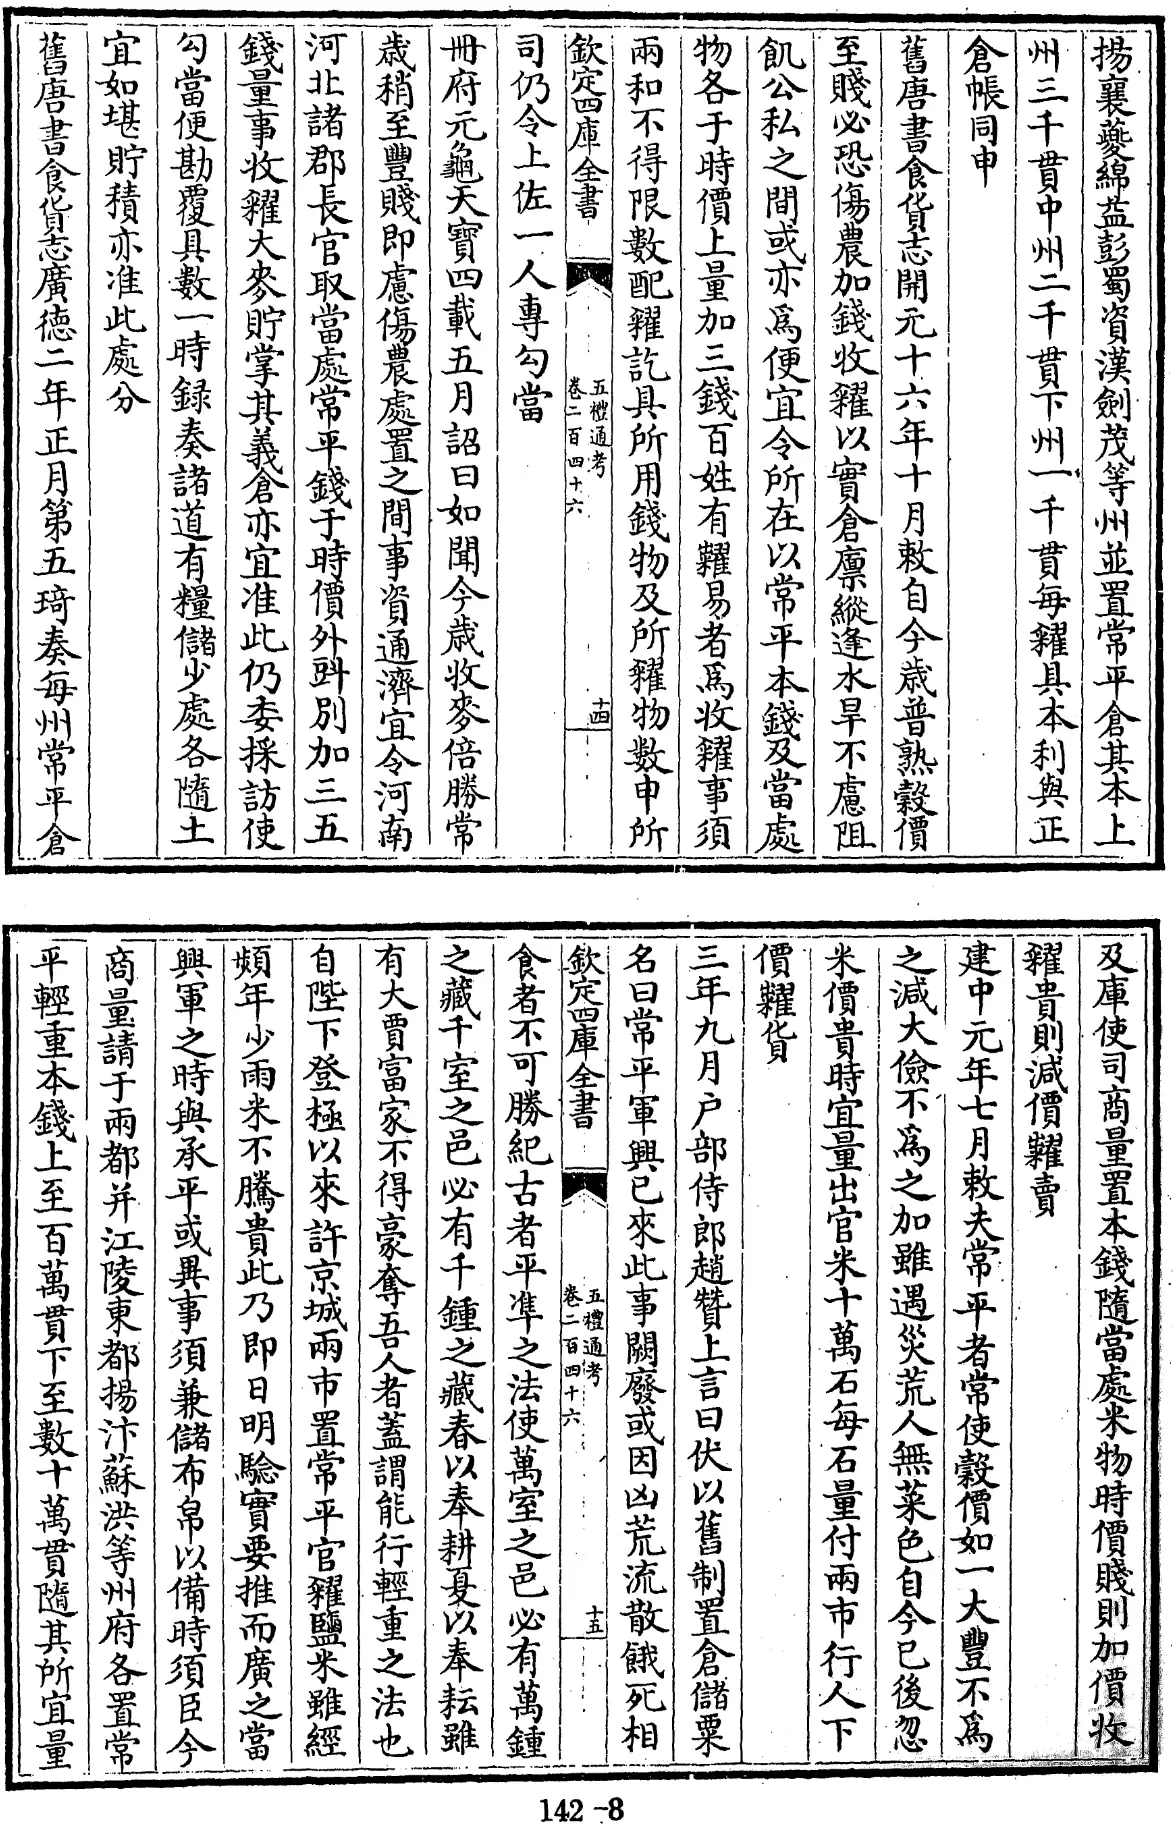 揚襄夔綿益彭蜀資漢劍茂等州並置常平倉其本上
州三千貫中州二千貫下州一千貫每糴具本利與正
倉帳同申
舊唐書食貨志開元十六年十月敕自今歲普熟穀價
至賤必恐傷農加錢收糴以實倉廪縱逢水旱不慮阻
飢公私之間或亦爲便宜令所在以常平本錢及當處
物各于時價上量加三錢百姓有糶易者爲收糴事須
兩和不得限數配糴訖具所用錢物及所糴物數申所
欽定四庫全書
五禮通考
卷二百四十六
十四
司仍令上佐一人專勾當
冊府元龜天寶四載五月詔曰如聞今歲收麥倍勝常
歲稍至豐賤即慮傷農處置之間事資通濟宜令河南
河北諸郡長官取當處常平錢于時價外㪷別加三五
錢量事收糴大麥貯掌其義倉亦宜准此仍委採訪使
勾當便勘覆具數一時錄奏諸道有糧儲少處各隨土
宜如堪貯積亦准此處分
舊唐書食貨志廣德二年正月第五琦奏每州常平倉
及庫使司商量置本錢隨當處米物時價賤則加價收
糴貴則減價糶賣
建中元年七月敕夫常平者常使穀價如一大豐不爲
之減大儉不爲之加雖遇災荒人無菜色自今已後忽
米價貴時宜量出官米十萬石每石量付兩市行人下
價糶貨
三年九月户部侍郎趙贊上言曰伏以舊制置倉儲粟
名曰常平軍興已來此事闕廢或因凶荒流散餓死相
欽定四庫全書
五禮通考
卷二百四十六
十五
食者不可勝紀古者平準之法使萬室之邑必有萬鍾
之藏千室之邑必有千鍾之藏春以奉耕夏以奉耘雖
有大賈富家不得豪奪吾人者蓋謂能行輕重之法也
自陛下登極以來許京城兩市置常平官糴鹽米雖經
頻年少雨米不騰貴此乃即日明驗實要推而廣之當
興軍之時與承平或異事須兼儲布帛以備時須臣今
商量請于兩都并江陵東都揚汴蘇洪等州府各置常
平輕重本錢上至百萬貫下至數十萬貫隨其所宜量
142-8